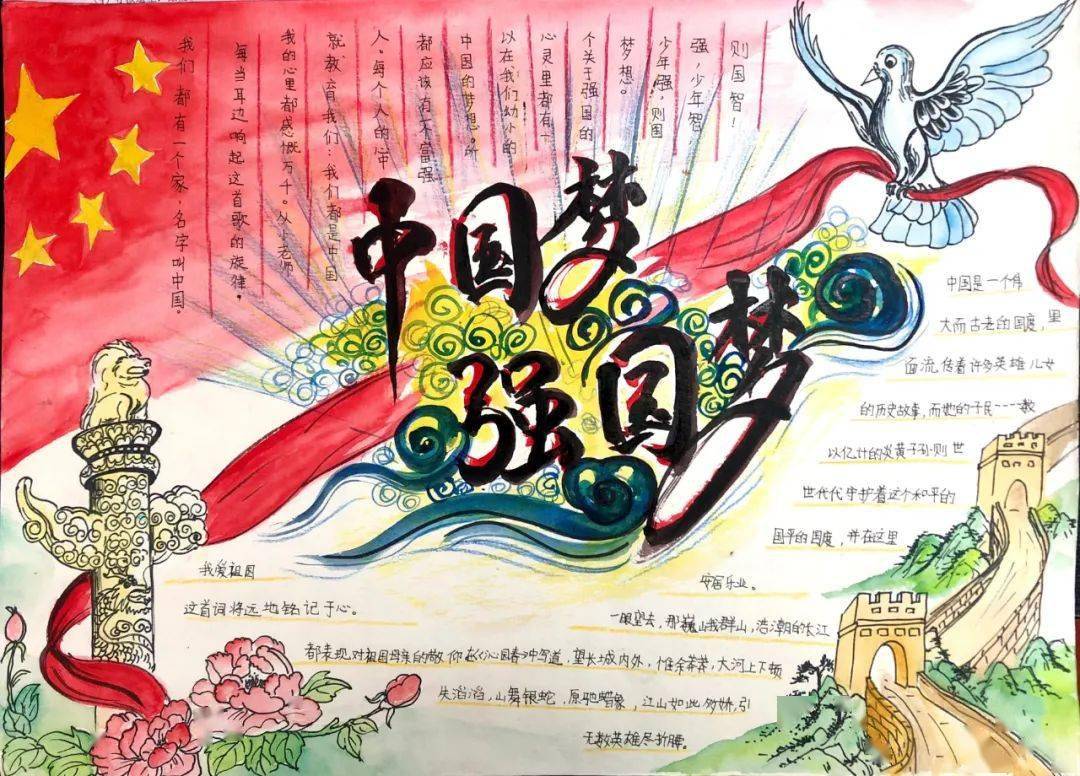 我们都有一个家,名字叫中国。
每当耳边响起这首歌的旋律,
我的心里都感慨万千。从小老师
就教育我们:我们都是中国
人。每个人的心中
都应该有不富强
中国的梦想。所
以在我们幼小的
心灵里都有一
个关于强国的
梦想。
少年强,则国
强,少年智
则国智!
中国梦
强国梦
中国是一个
大而古老的国度,里
面流传着许多英雄儿女
的历史故事,而她的子民----数
以亿计的炎黄子孙则世
世代代守护着这个和平的
国平的国度,并在这里
安居乐业。
一眼望去,那巍峨群山,浩潮的长江
都表现对祖国母亲的敬 你在《沁园春》中写道,望长城内外,惟余莽莽,大河上下顿
失滔滔,山舞银蛇,原驰蜡象,江山如此多娇,引
无数英雄尽折腰。
我爱祖国
这首词将远地铭记于心。